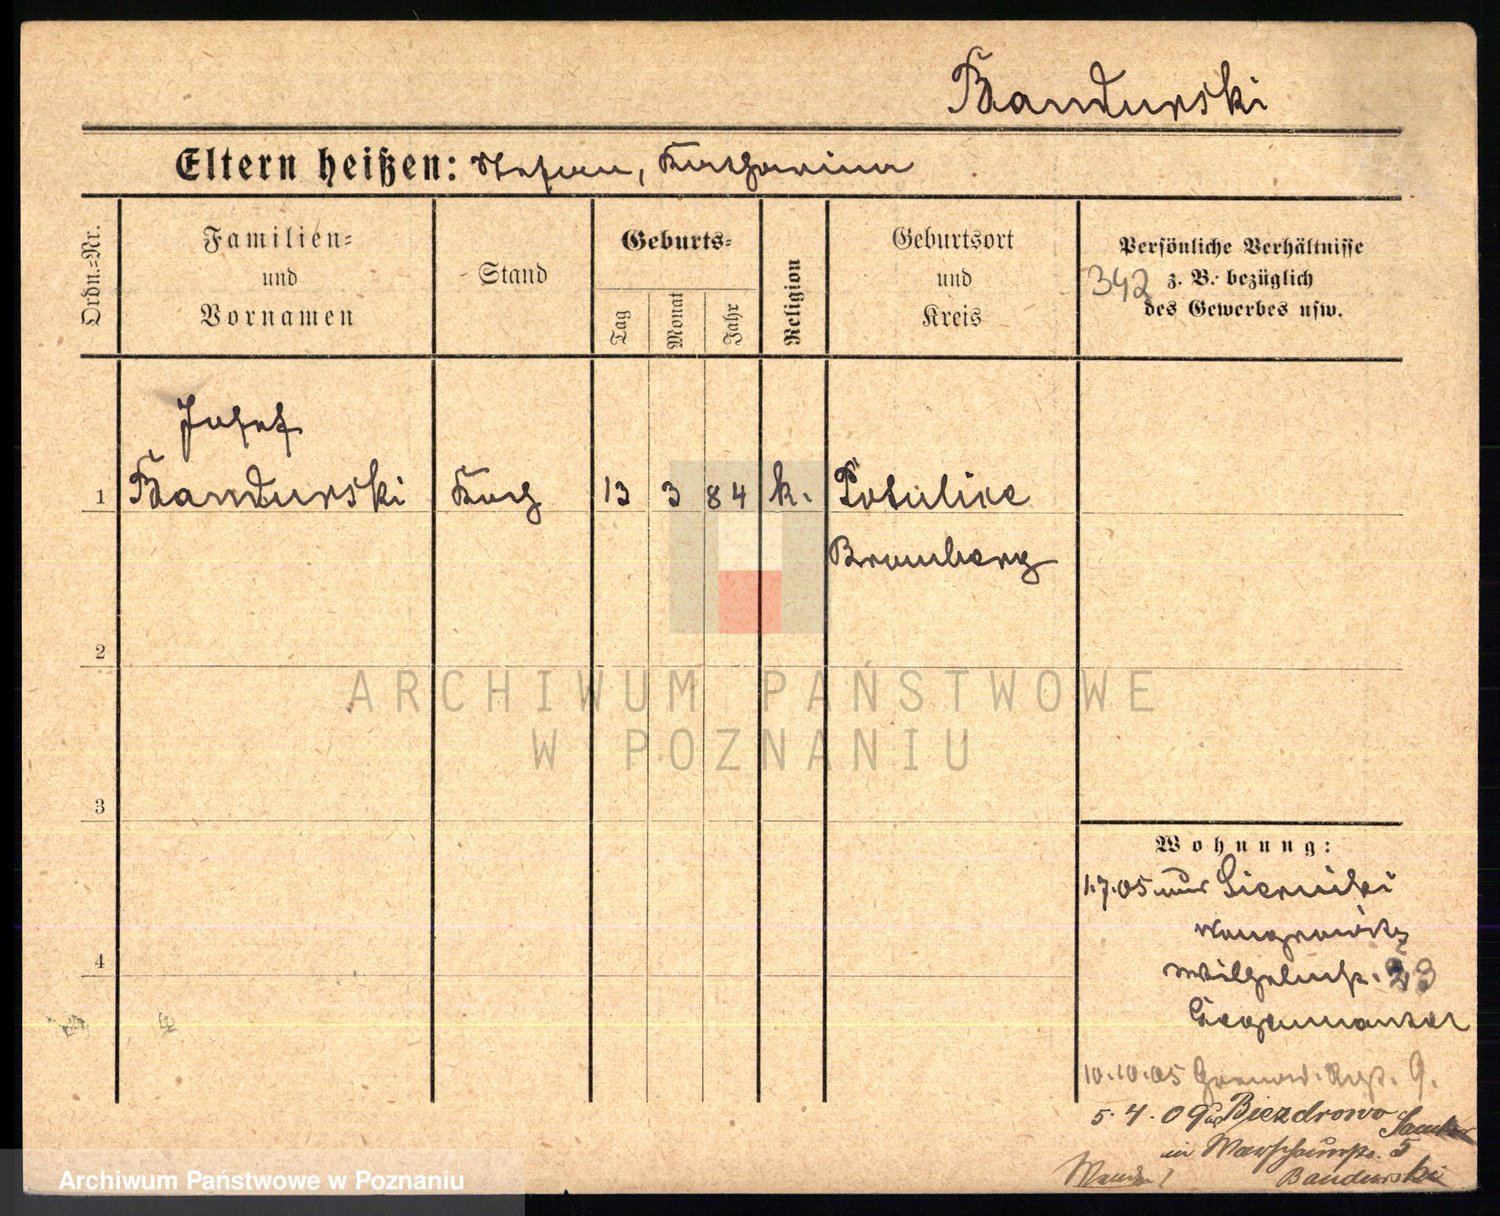 Bandurski
Eltern heißen: Stefan, Katharina
Ordn.=Nr.
Familien=
und
Vornamen
Stand
Geburts=
Tag
Monat
Jahr
Religion
Geburtsort
und
Kreis
Persönliche Verhältnisse
z. B. bezüglich
des Gewerbes usw.
342
Josef
1 Bandurski Koch 13 3 84 k. Potulice
Bromberg
2
ARCHIWUM PAŃSTWOWE
W POZNANIU
3
Wohnung:
1.7.05
Wongrowitz
Wilhelmstr. 23
4
10.10.05 9.
5.4.09 Biezdrowo Samter
in 5
Bandurski
Archiwum Państwowe w Poznaniu